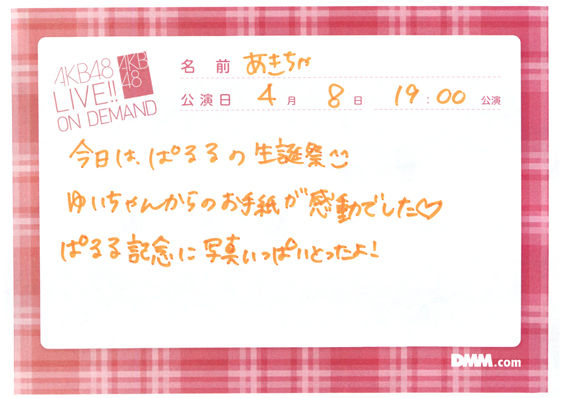 AKB48
LIVE!!
ON DEMAND
AKB
48
名前 あきちゃ
公演日 4月 8日 19:00 公演
今日は、ぱるるの生誕祭
ゆいちゃんからのお手紙が感動でした♡
ぱるる記念に写真いっぱいとったよ!
DMM.com